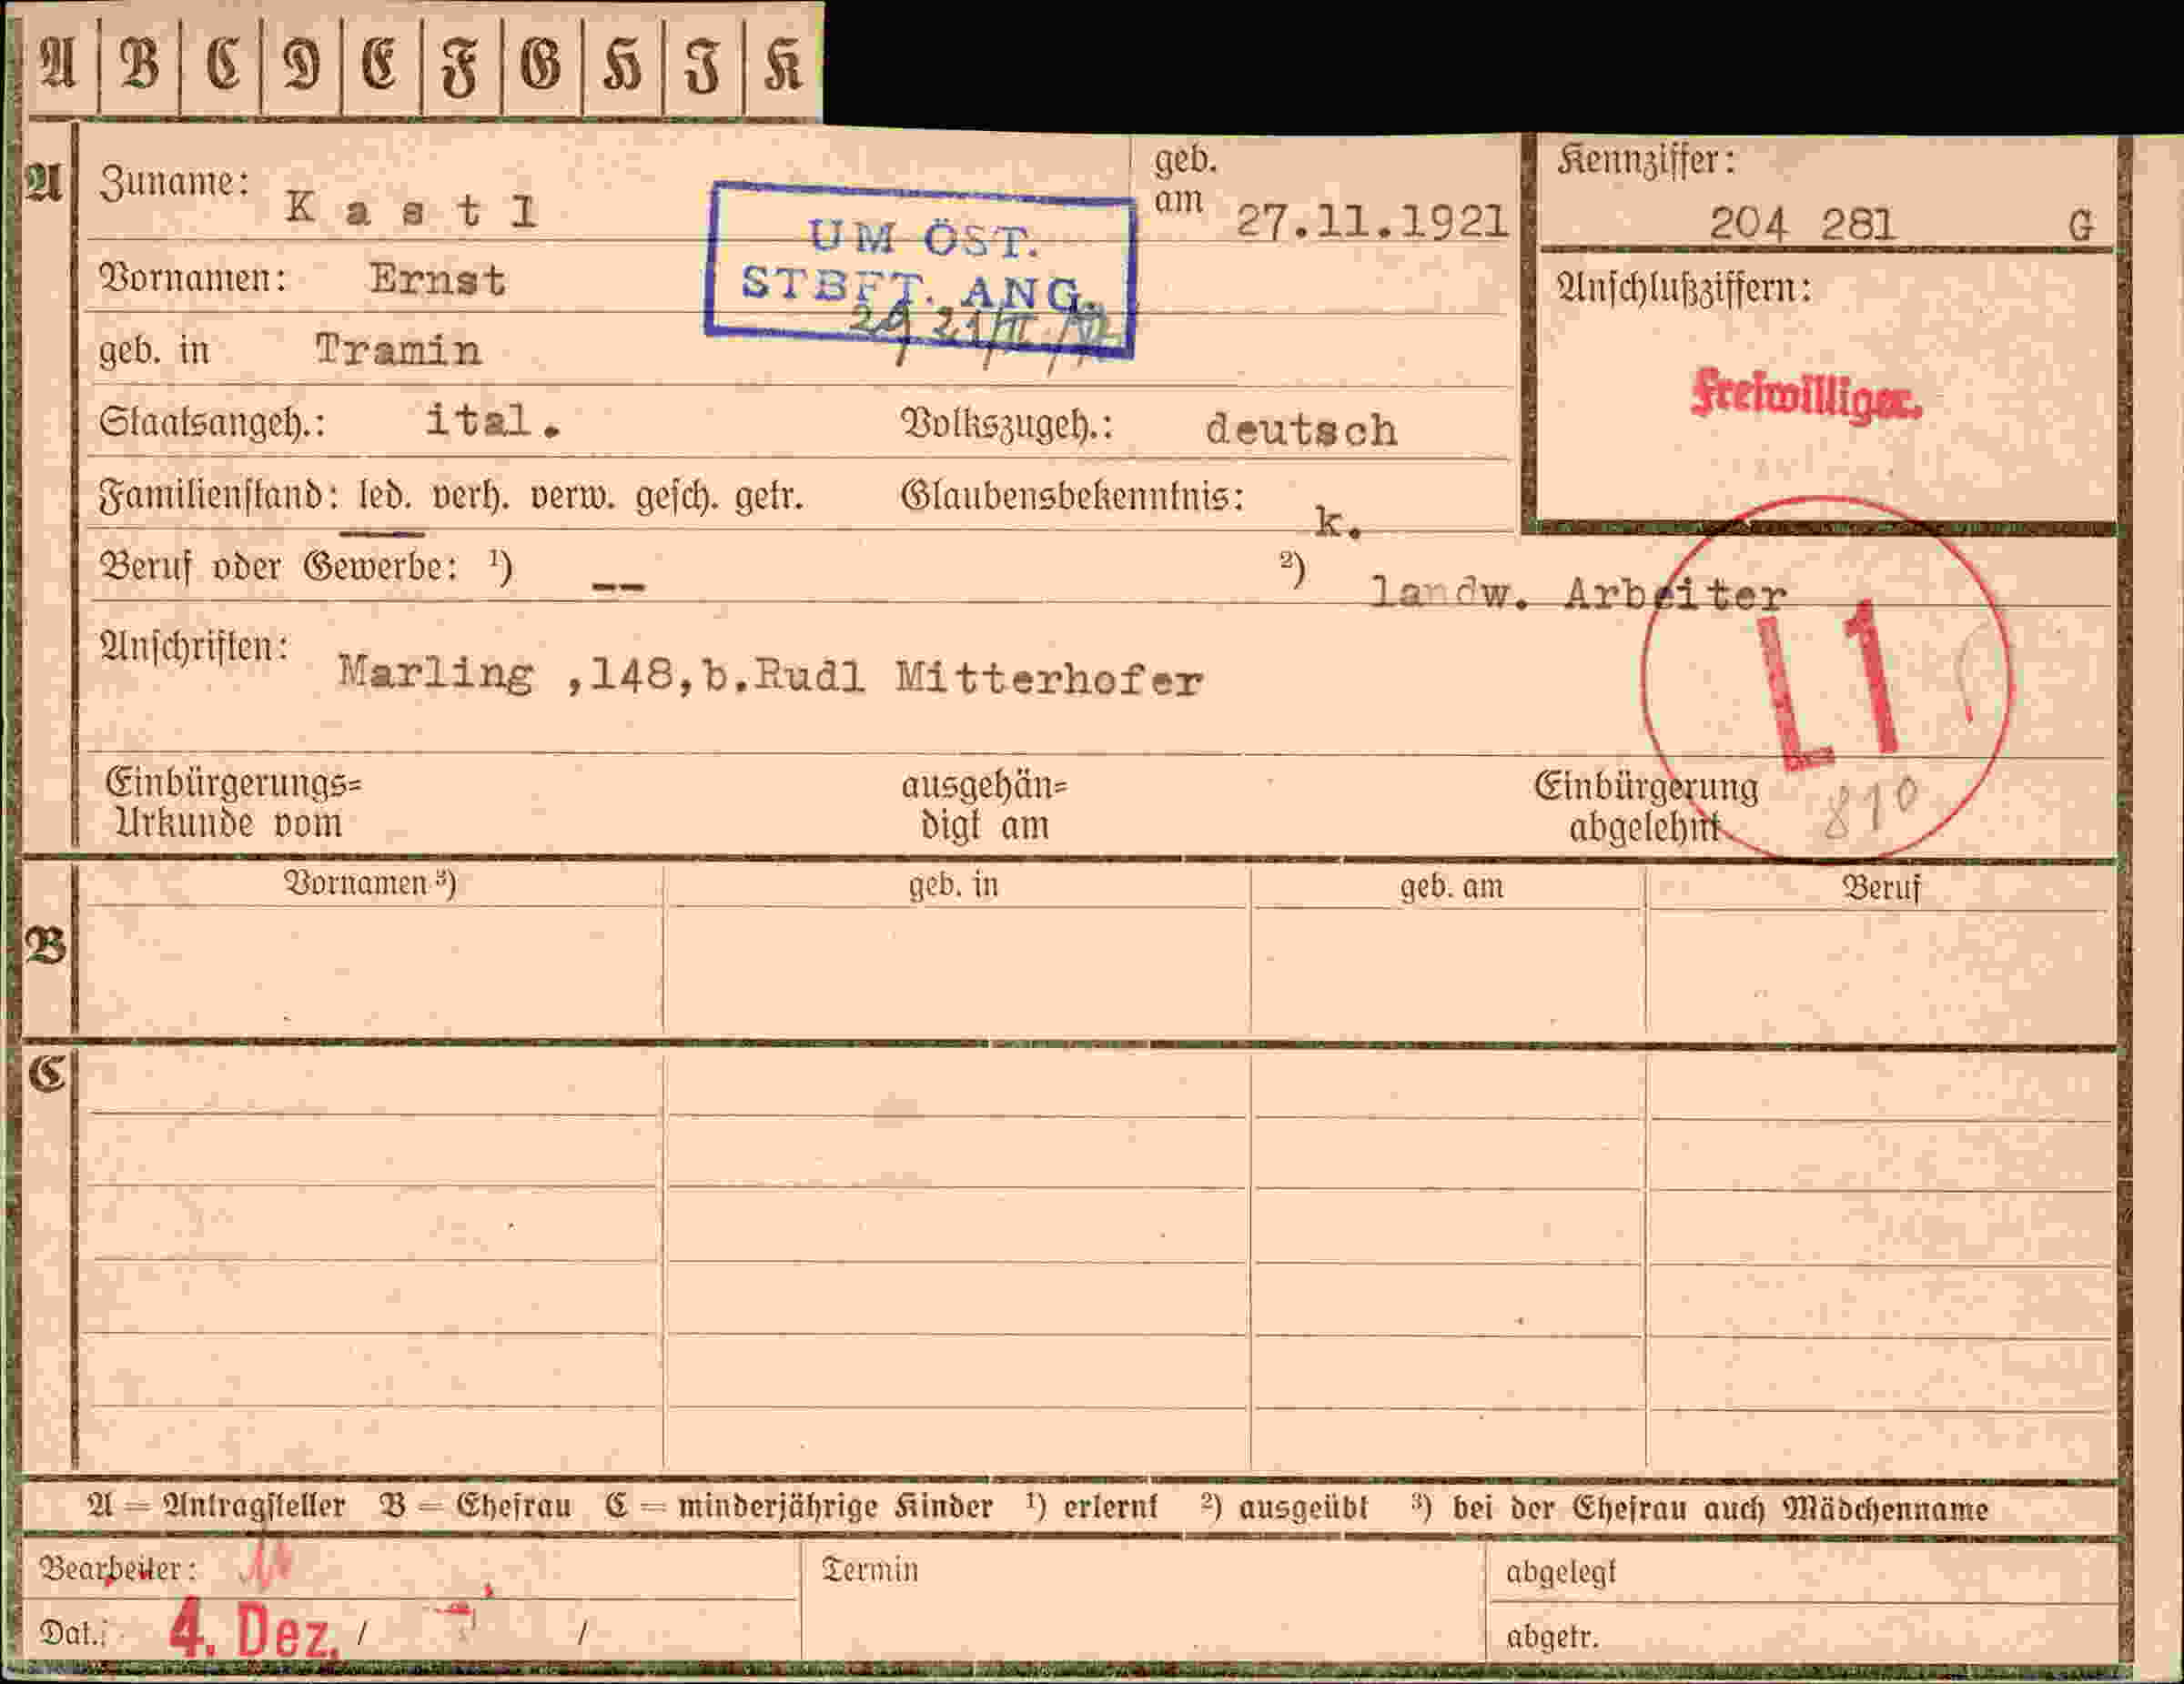 A B C D E F G H J K
A Zuname: Kastl
geb. am 27.11.1921
Kennziffer: 204 281 G
UM ÖST.
STBFT. ANG.
Vornamen: Ernst
geb. in Tramin
Anschlußziffern:
Freiwilliger.
Staatsangeh.: ital. Volkszugeh.: deutsch
Familienstand: led. verh. verw. gesch. getr. Glaubensbekenntnis: k.
Beruf oder Gewerbe: ¹) -- ²) landw. Arbeiter
L1
Anschriften: Marling ,148,b.Rudl Mitterhofer
Einbürgerungs=
Urkunde vom
ausgehän=
digt am
Einbürgerung
abgelehnt
810
B Vornamen ³) geb. in geb. am Beruf
C
A = Antragsteller B = Ehefrau C = minderjährige Kinder ¹) erlernt ²) ausgeübt ³) bei der Ehefrau auch Mädchenname
Bearbeiter: Termin abgelegt
Dat.: 4. Dez. / / abgetr.